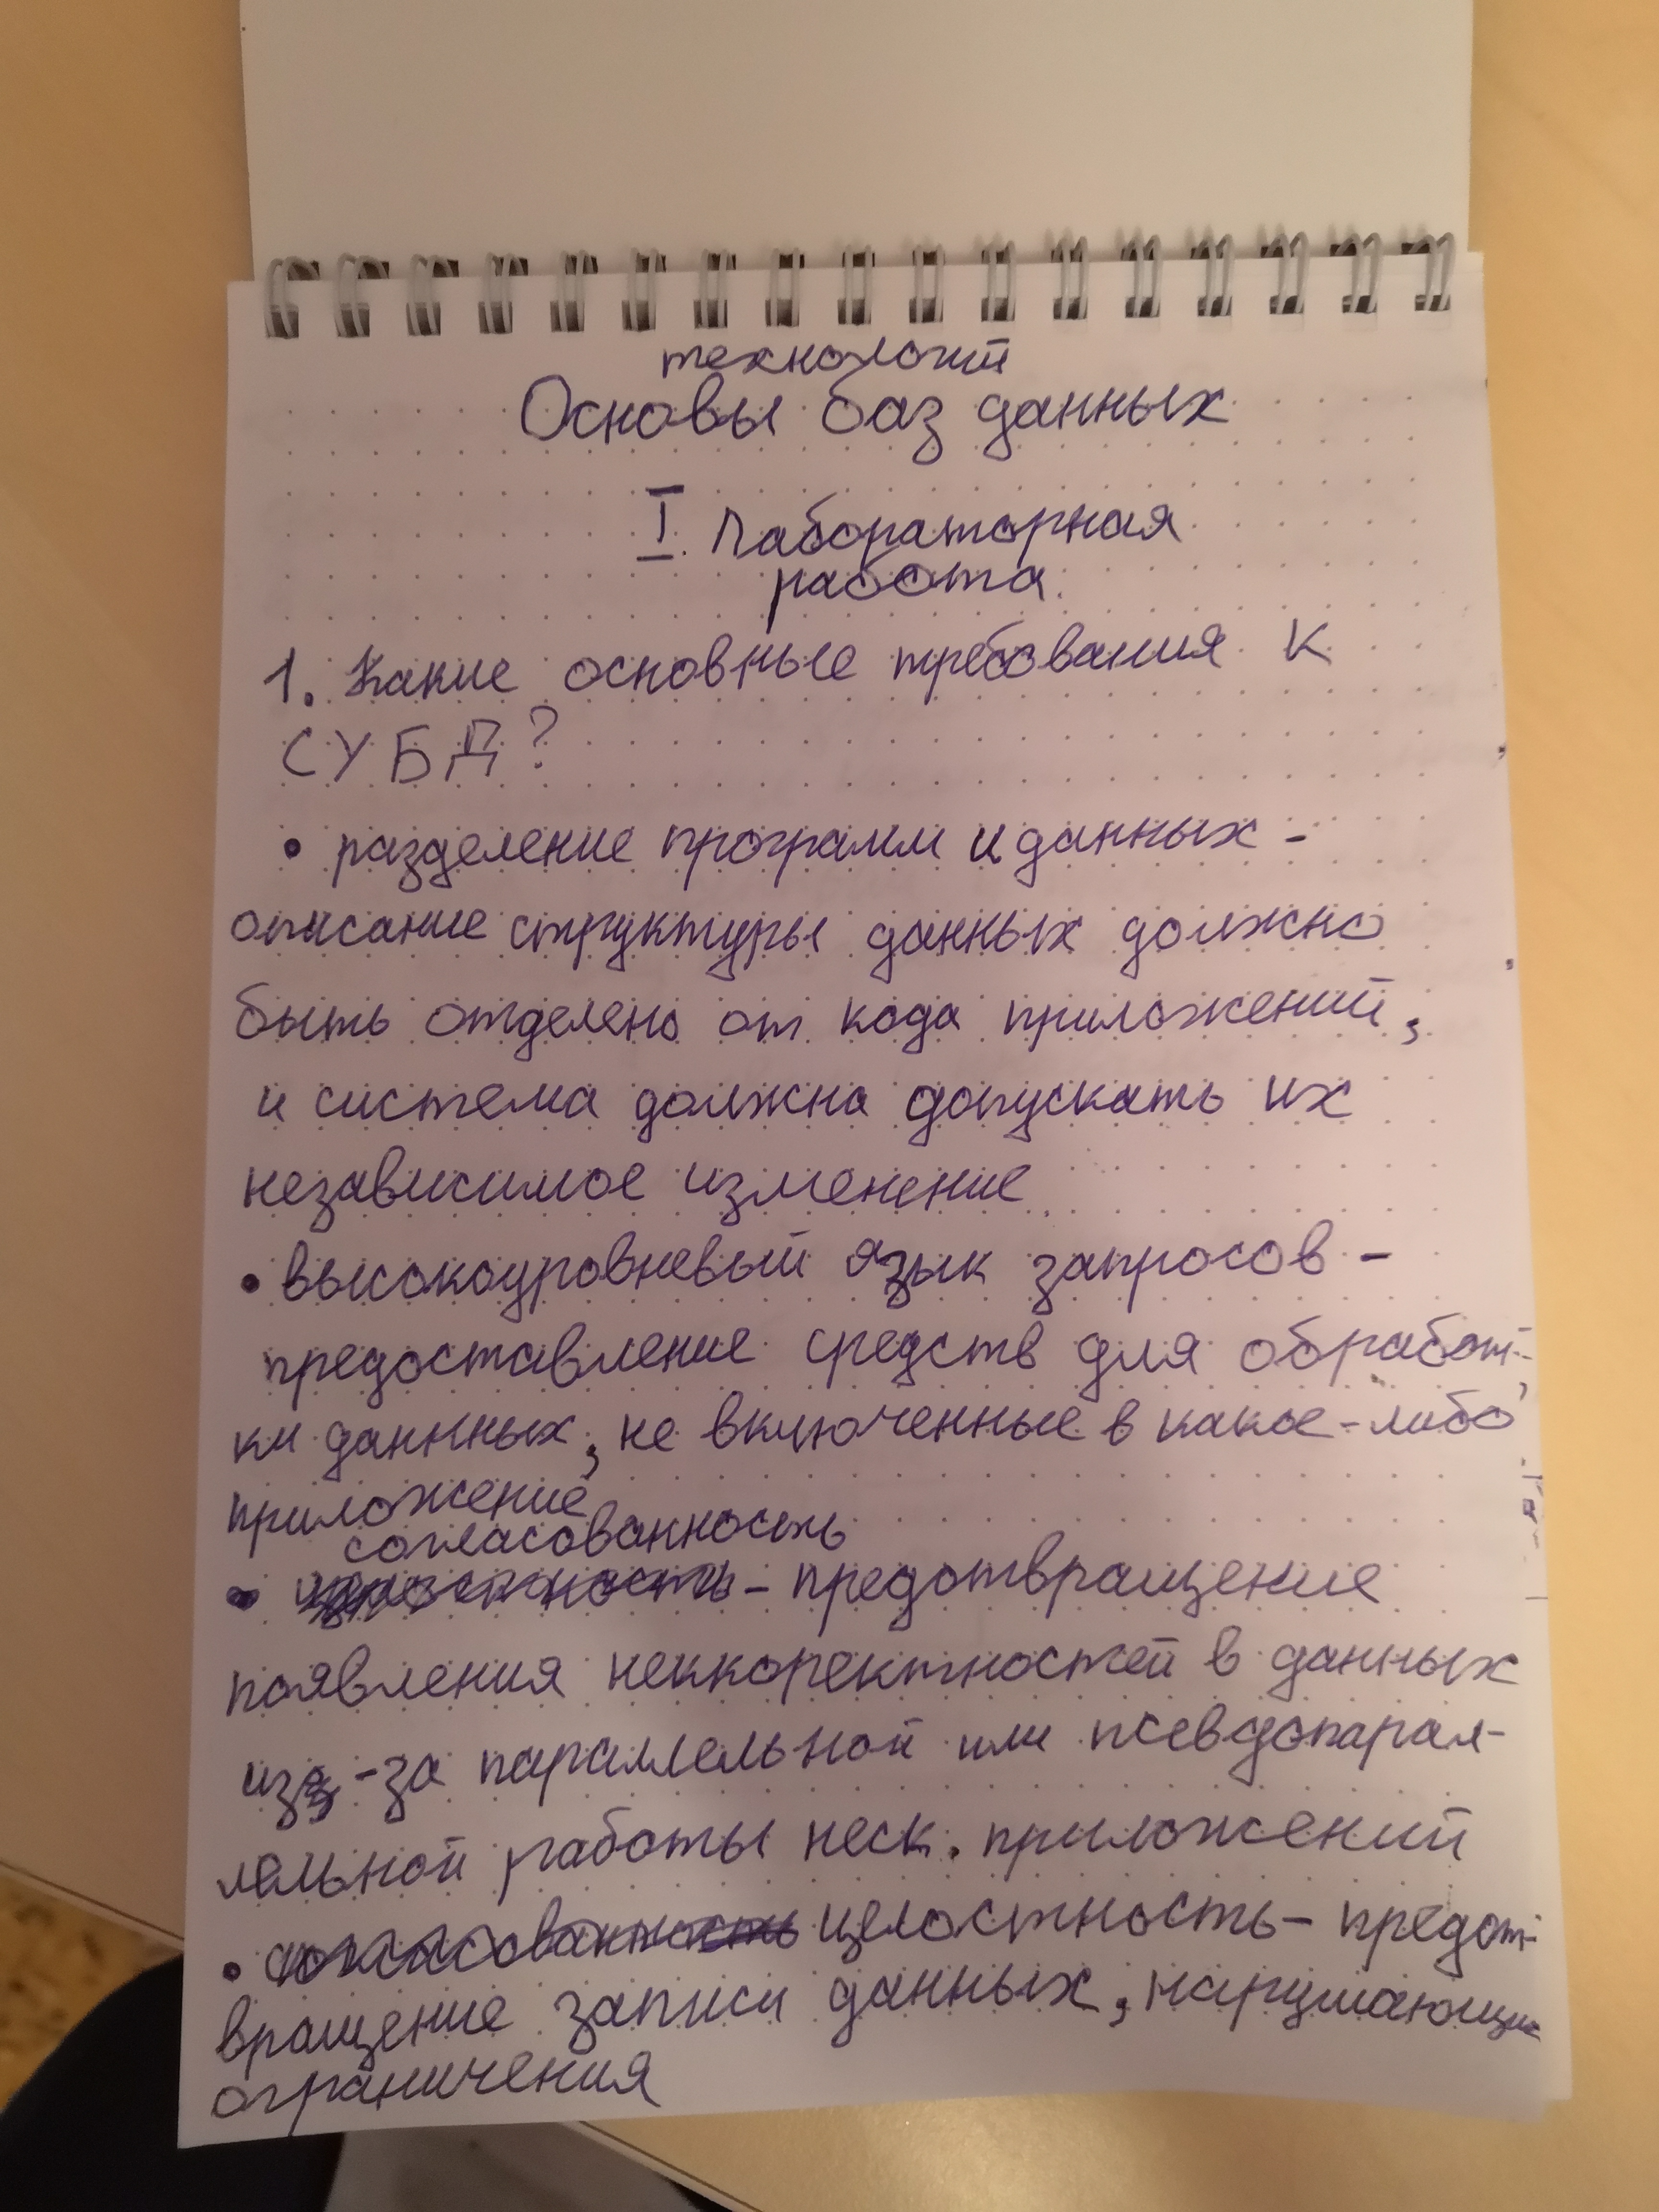 технологий
Основы баз данных
I. Лабораторная
работа.
1. Какие основные требования к
СУБД?
• разделение программ и данных -
описание структуры данных должно
быть отделено от кода приложений,
и система должна допускать их
независимое изменение
• высокоуровневый язык запросов -
предоставление средств для обработ-
ки данных, не включенные в какое-либо
приложение
согласованность
• целостность - предотвращение
появления неккоректностей в данных
из-за параллельной или псевдопарал-
лельной работы неск. приложений
• согласованность целостность - предот-
вращение записи данных, нарушающих
ограничения